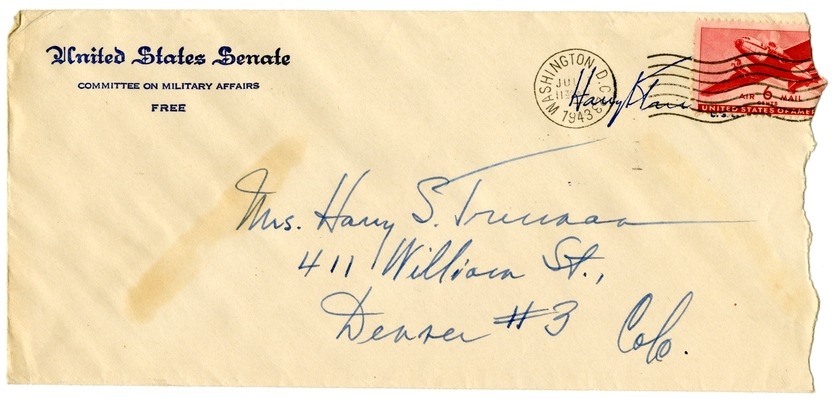 United States Senate
COMMITTEE ON MILITARY AFFAIRS
FREE
WASHINGTON, D.C.
1943
Harry
AIR 6 MAIL
CENTS
UNITED STATES OF AMER
Mrs. Harry S. Truman
411 William St.,
Denver #3 Colo.